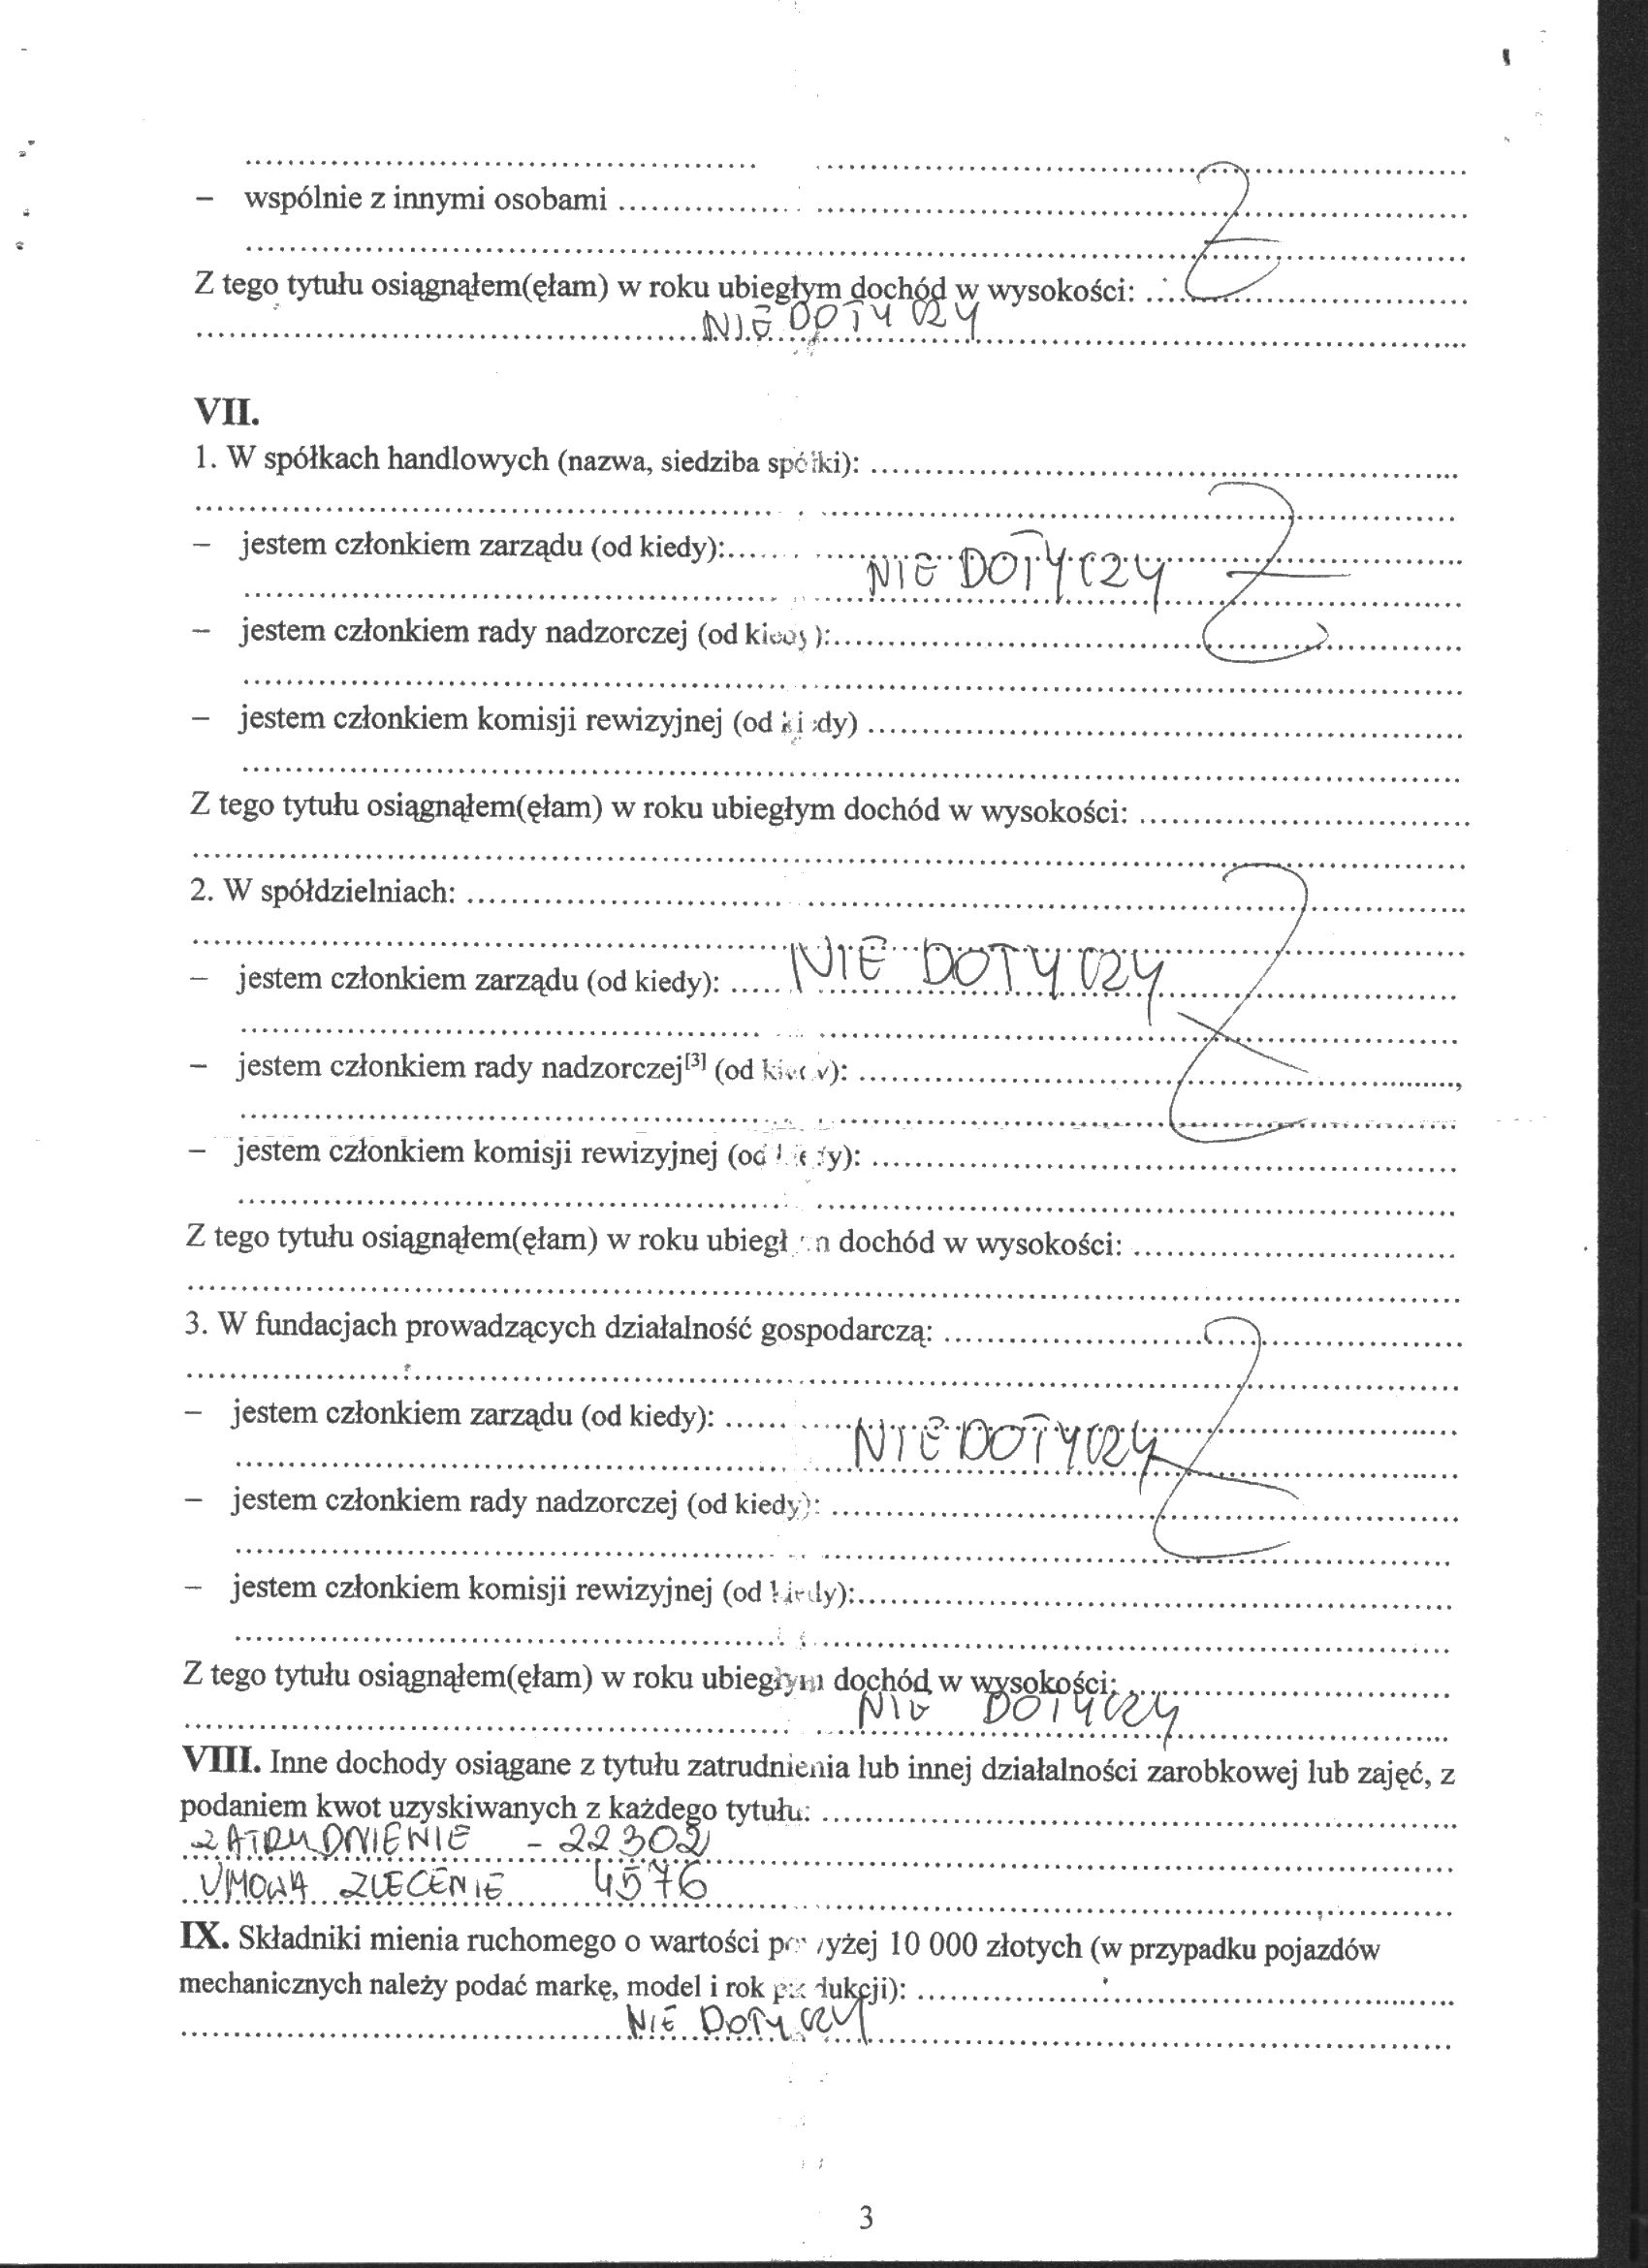 – wspólnie z innymi osobami ....................
Z tego tytułu osiągnąłem(ęłam) w roku ubiegłym dochód w wysokości: ....................
NIE DOTYCZY
VII.
1. W spółkach handlowych (nazwa, siedziba spółki): ....................
– jestem członkiem zarządu (od kiedy):....................
NIE DOTYCZY
– jestem członkiem rady nadzorczej (od kiedy):....................
– jestem członkiem komisji rewizyjnej (od kiedy) ....................
Z tego tytułu osiągnąłem(ęłam) w roku ubiegłym dochód w wysokości: ....................
2. W spółdzielniach: ....................
NIE DOTYCZY
– jestem członkiem zarządu (od kiedy): ....................
– jestem członkiem rady nadzorczej[3] (od kiedy): ....................,
– jestem członkiem komisji rewizyjnej (od kiedy): ....................
Z tego tytułu osiągnąłem(ęłam) w roku ubiegłym dochód w wysokości: ....................
3. W fundacjach prowadzących działalność gospodarczą: ....................
– jestem członkiem zarządu (od kiedy): ....................
NIE DOTYCZY
– jestem członkiem rady nadzorczej (od kiedy): ....................
– jestem członkiem komisji rewizyjnej (od kiedy):....................
Z tego tytułu osiągnąłem(ęłam) w roku ubiegłym dochód w wysokości: ....................
NIE DOTYCZY
VIII. Inne dochody osiągane z tytułu zatrudnienia lub innej działalności zarobkowej lub zajęć, z
podaniem kwot uzyskiwanych z każdego tytułu: ....................
ZATRUDNIENIE - 22302
UMOWA ZLECENIE 4576
IX. Składniki mienia ruchomego o wartości powyżej 10 000 złotych (w przypadku pojazdów
mechanicznych należy podać markę, model i rok produkcji): ....................
NIE DOTYCZY
3